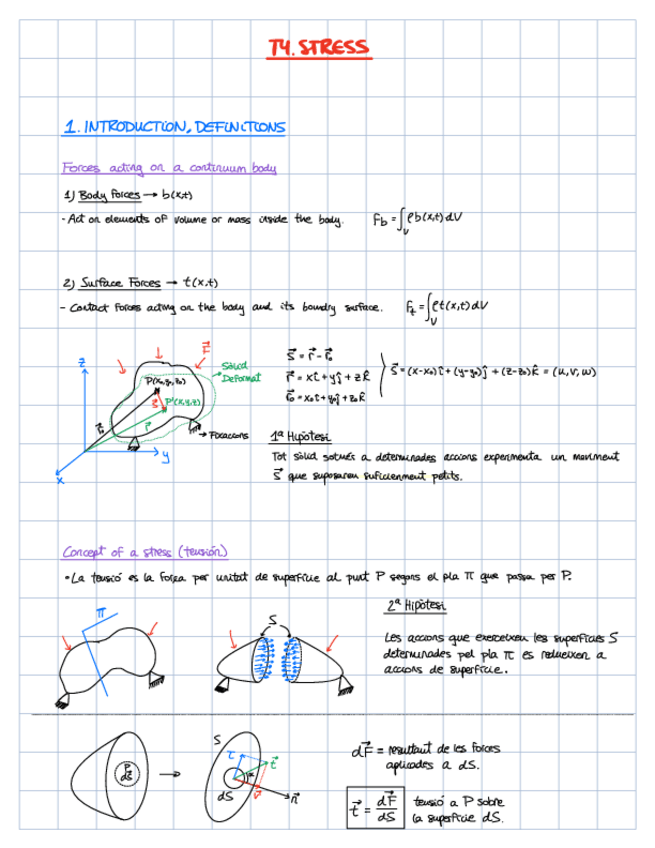 T4. STRESS
1. INTRODUCTION, DEFINITIONS
Forces acting on a continuum body
1) Body Forces → b(x,t)
- Act on elements of volume or mass inside the body. F_b = ∫_V ρ b(x,t) dV
2) Surface Forces → t(x,t)
- Contact forces acting on the body and its boundry surface. F_t = ∫_V ρ t(x,t) dV
z
F⃗
Sòlid
Deformat
P(x₀,y₀,z₀)
P'(x,y,z)
δ⃗
r⃗₀
r⃗
y
x
δ⃗ = r⃗ - r⃗₀
r⃗ = xî + yĵ + zk̂
r⃗₀ = x₀î + y₀ĵ + z₀k̂
δ⃗ = (x-x₀)î + (y-y₀)ĵ + (z-z₀)k̂ = (u, v, w)
1ª Hipòtesi
Tot sòlid sotmès a determinades accions experimenta un moviment
δ⃗ que suposarem suficienment petits.
Concept of a stress (tensión)
• La tensió es la força per unitat de superfície al punt P segons el pla π que passa per P.
π
S
2ª Hipòtesi
Les accions que exerceixen les superfícies S
determinades pel pla π es redueixen a
accions de superfície.
P
dS
S
τ
t⃗
α
σ
n⃗
dS
dF⃗ = resultant de les forces
aplicades a dS.
t⃗ = dF⃗/dS
tensió a P sobre
la superfície dS.